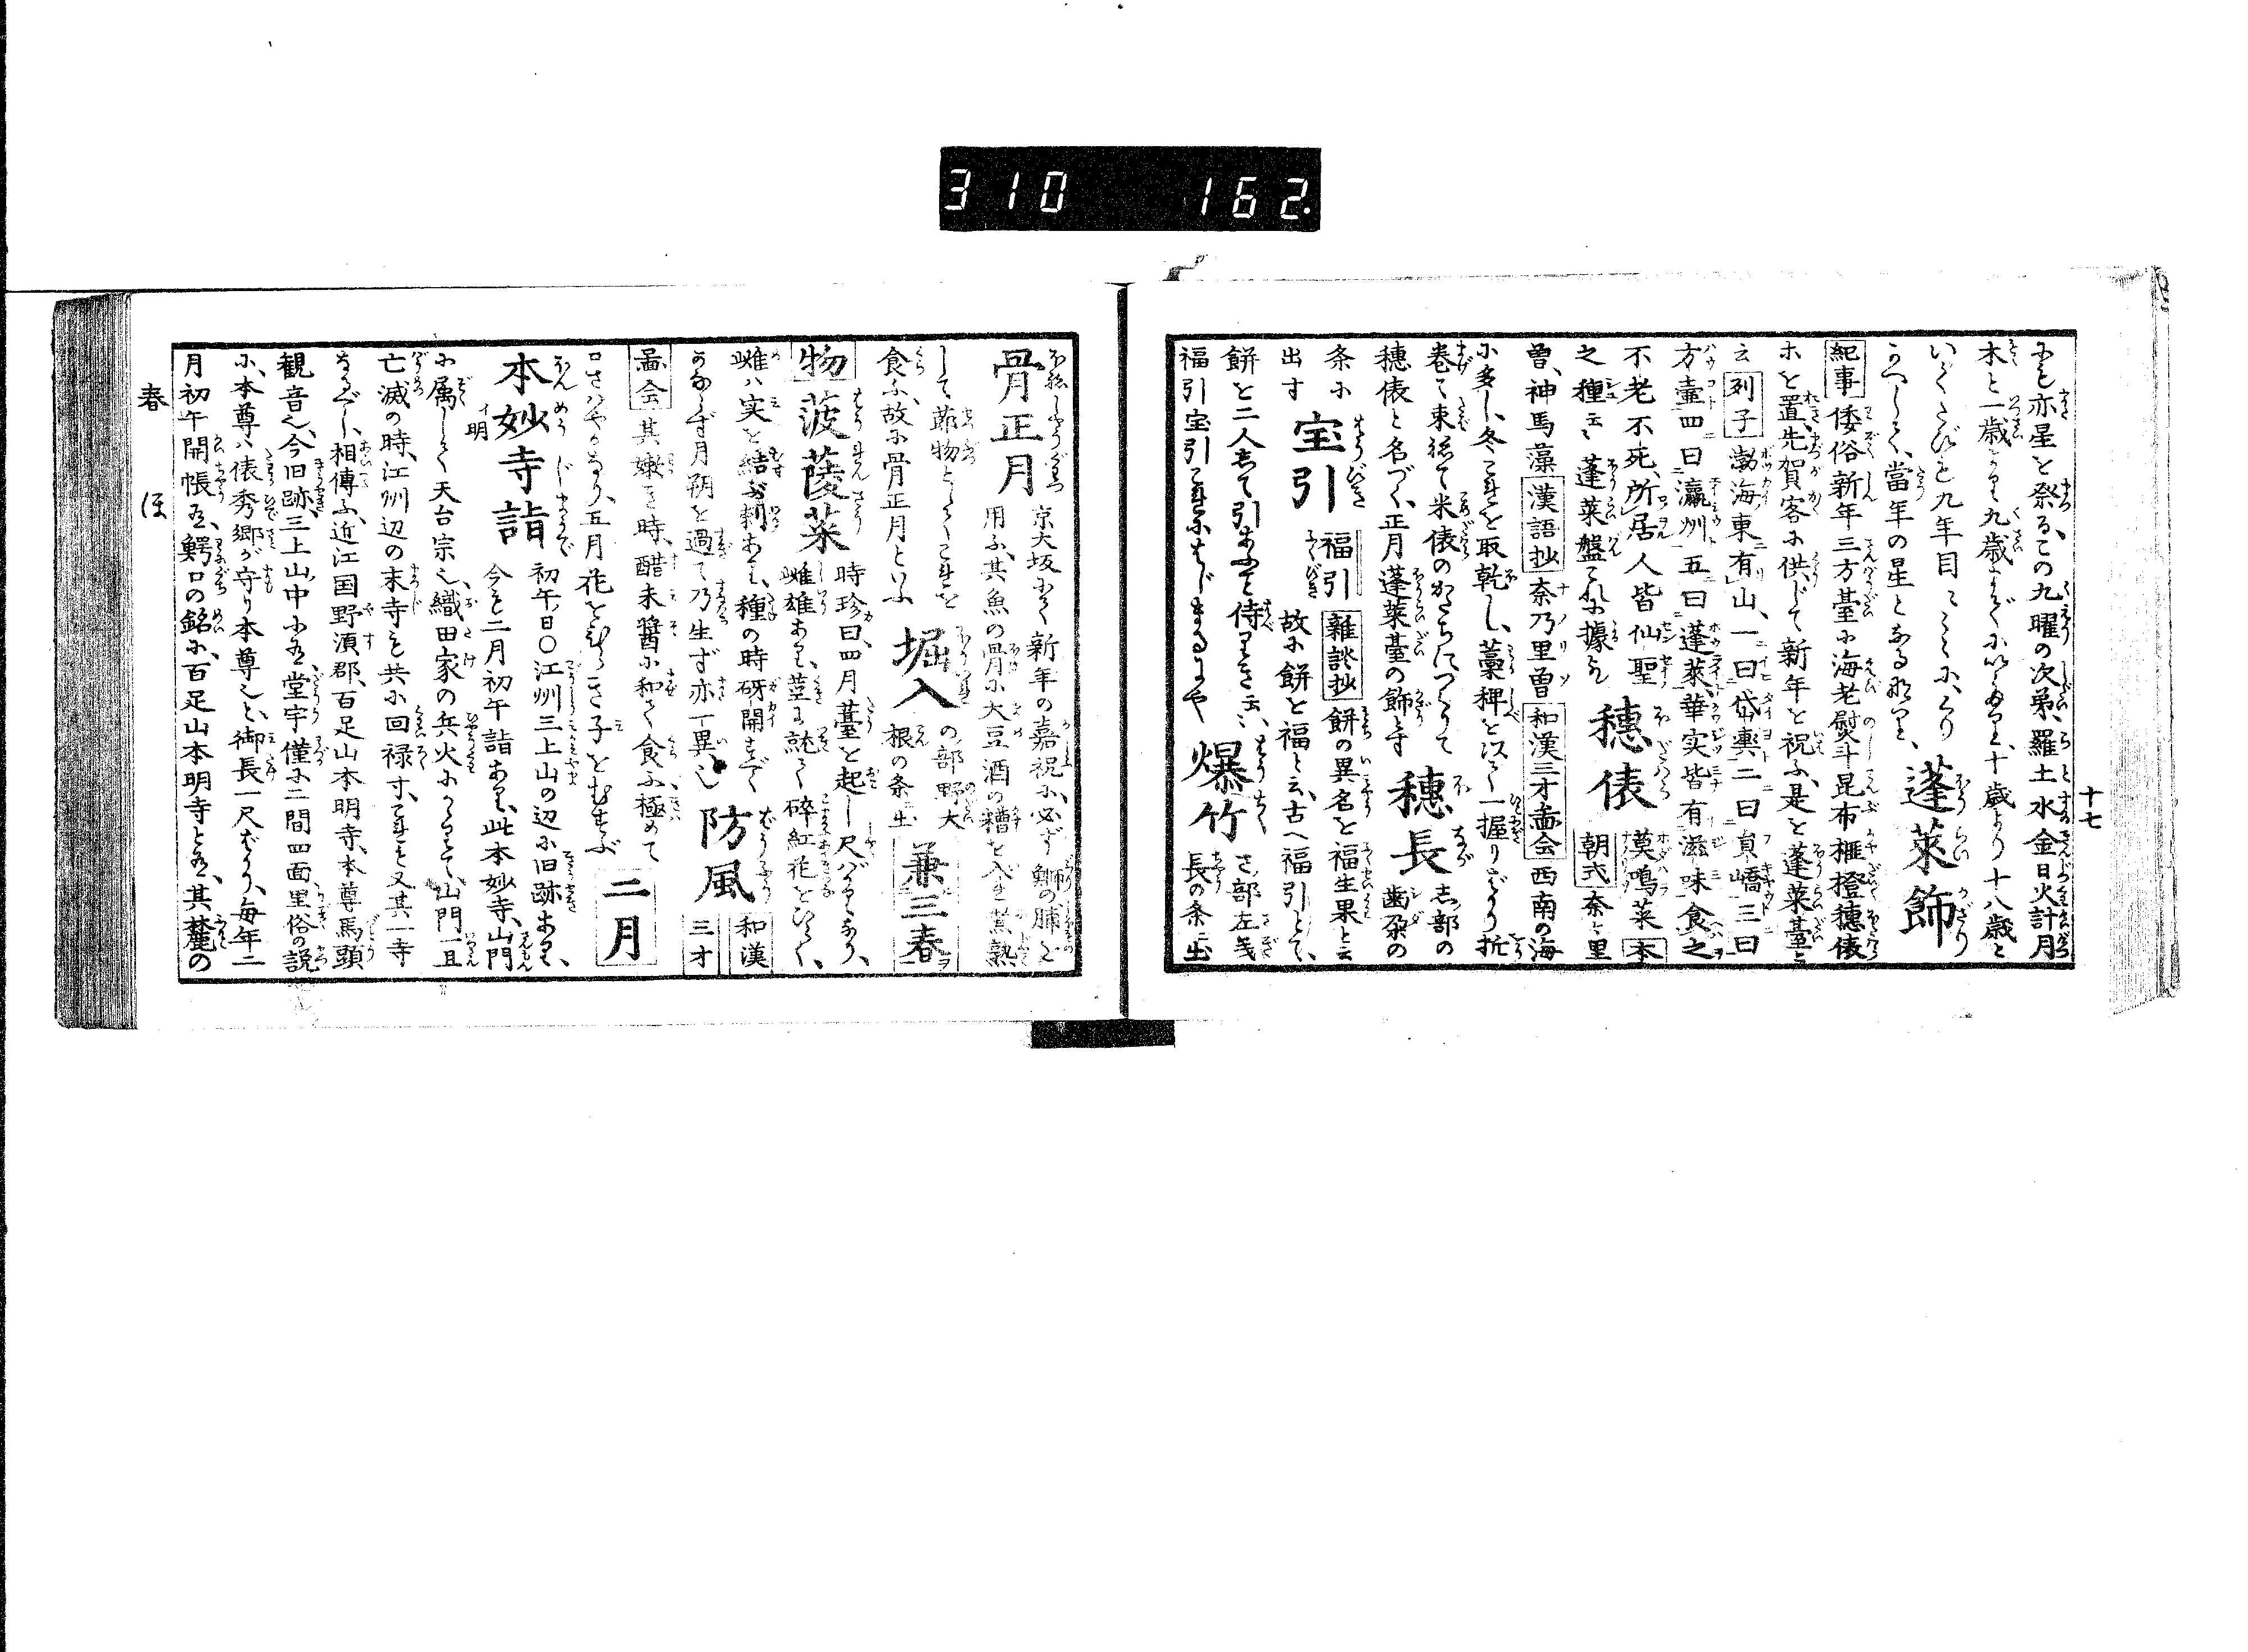 310 162.
十七
にも亦星を祭る、この九曜の次第、羅土水金日火計月
木と一歳より九歳までにいたり、十歳より十八歳と
いくたびも九年目〳〵に、くり
かへして、當年の星となるなり、
蓬萊飾
紀事 倭俗新年三方臺に海老熨斗昆布榧橙穗俵
ホを置、先賀客に供じて新年を祝ふ、是を蓬萊臺と
云 列子 渤海東有山、一曰岱輿二曰員嶠三曰
方壷四曰瀛州五曰蓬萊華実皆有滋味食之
不老不死、所居人皆仙聖
之種云云 蓬萊盤これに據る
穗俵
莫鳴菜 本
朝式 奈々里
曽、神馬藻 漢語抄 奈乃里曽 和漢三才啚会 西南の海
に多し、冬これを取乾し、藁稗を以て一握りばかり折
巻て束ねて米俵のかたちにつくりて
穗俵と名づく、正月蓬萊臺の飾とす
穗長
志部の
歯朶の
条に
出す
宝引
福引 雜談抄 餅の異名を福生果と云
故に餅を福と云、古へ福引とて、
餅を二人して引あふ事侍りき云云、
福引宝引これにはじまるにや
爆竹
さ部左義
長の条ニ出
骨正月
京大坂にて新年の嘉祝に必ず鰤の脯を
用ふ、其魚の骨に大豆酒の糟を入レ煮熟
して節物とし〳〵これを
食ふ、故に骨正月といふ
堀入
の部野大
根の条ニ出
兼三春
物
菠薐菜
時珍曰、四月薹を起し尺ばかりあり、
雌雄あり、莖に就て碎紅花をひらく、
雌ハ実を結ぶ刺あり、種の時砑開まで
かならず月朔を過て乃生ず亦一異也
防風
和漢
三才
啚会 其嫩き時、醋未醤に和て食ふ極めて
口さハやかなり、五月花をひらき子をむすぶ
二月
本妙寺詣
イ明
初午ノ日〇江州三上山の辺に旧跡あり、
今も二月初午詣あり、此本妙寺、山門
に属して天台宗也、織田家の兵火にかゝりて、山門一旦
亡滅の時、江州辺の末寺も共に回禄す、これも又其一寺
なるべし、相傳ふ、近江国野湏郡、百足山本明寺、本尊馬頭
観音也、今旧跡、三上山中に有、堂宇僅に二間四面里俗の説
に、本尊ハ俵秀郷が守り本尊也と、御長一尺ばかり、毎年二
月初午開帳有、鰐口の銘に、百足山本明寺と有、其麓の
春 ほ